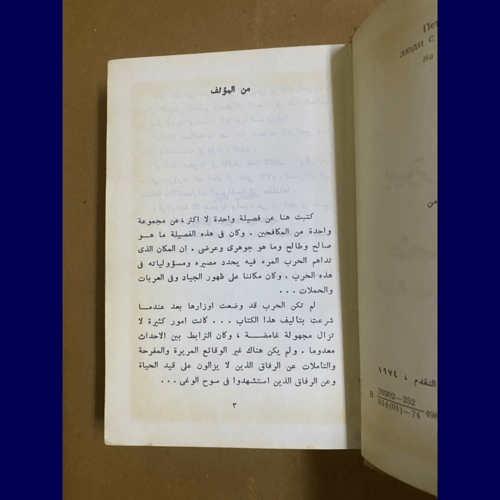 من المؤلف
كتبت هنا عن فصيلة واحدة لا اكثر، عن مجموعة
واحدة من المكافحين . وكان في هذه الفصيلة ما هو
صالح وطالح وما هو جوهرى وعرضى . ان المكان الذى
تداهم الحرب المرء فيه يحدد مصيره ومسؤولياته فى
هذه الحرب . وكان مكاننا على ظهور الجياد وفى العربات
والحملات ...
لم تكن الحرب قد وضعت اوزارها بعد عندما
شرعت بتأليف هذا الكتاب ... كانت امور كثيرة لا
تزال مجهولة غامضة ، وكان الترابط بين الاحداث
معدوما . ولم يكن هناك غير الوقائع المريرة والمفرحة
والتاملات عن الرفاق الذين لا يزالون على قيد الحياة
وعن الرفاق الذين استشهدوا فى سوح الوغى ...
٣
Пет
ЛЮДИ С
На
من
التقدم ، ١٩٧٤
В 70302—252
014(01)—74 498